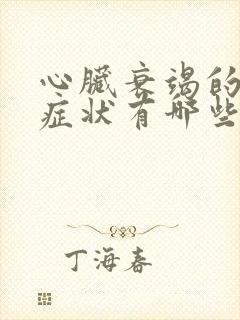 心臟衰竭的
症状有哪些
丁海春